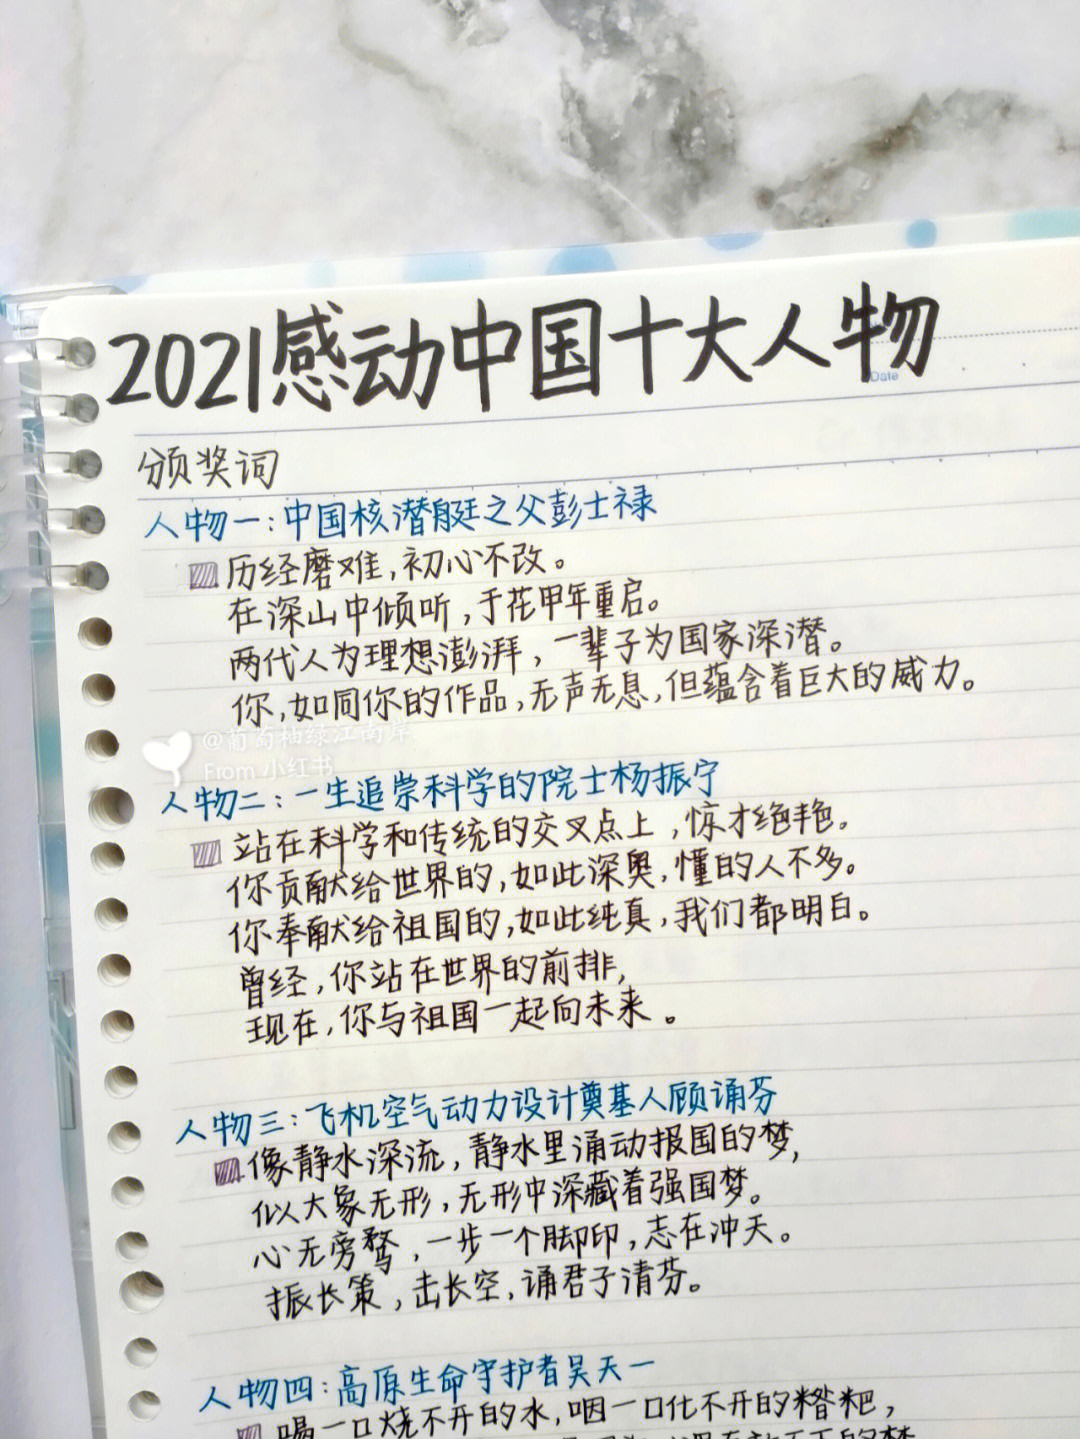 2021感动中国十大人物
Date
颁奖词
人物一：中国核潜艇之父彭士禄
历经磨难，初心不改。
在深山中倾听，于花甲年重启。
两代人为理想澎湃，一辈子为国家深潜。
你，如同你的作品，无声无息，但蕴含着巨大的威力。
@葡萄柚绿江南岸
From 小红书
人物二：一生追崇科学的院士杨振宁
站在科学和传统的交叉点上，惊才绝艳。
你贡献给世界的，如此深奥，懂的人不多。
你奉献给祖国的，如此纯真，我们都明白。
曾经，你站在世界的前排，
现在，你与祖国一起向未来。
人物三：飞机空气动力设计奠基人顾诵芬
像静水深流，静水里涌动报国的梦，
似大象无形，无形中深藏着强国梦。
心无旁骛，一步一个脚印，志在冲天。
振长策，击长空，诵君子清芬。
人物四：高原生命守护者吴天一
喝一口烧不开的水，咽一口化不开的糌粑，